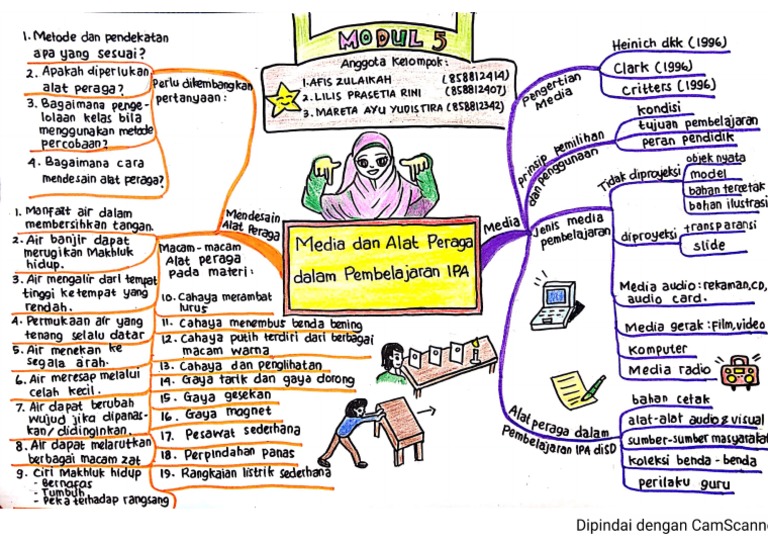 MODUL 5
Anggota Kelompok:
1. AFIS ZULAIKAH (858812414)
2. LILIS PRASETIA RINI (858812407)
3. MARETA AYU YUDISTIRA (858812342)
Media dan Alat Peraga
dalam Pembelajaran IPA
Mendesain
Alat Peraga
Perlu dikembangkan
pertanyaan:
1. Metode dan pendekatan
apa yang sesuai?
2. Apakah diperlukan
alat peraga?
3. Bagaimana penge-
lolaan kelas bila
menggunakan metode
percobaan?
4. Bagaimana cara
mendesain alat peraga?
Macam-macam
Alat peraga
pada materi:
1. Manfaat air dalam
membersihkan tangan.
2. Air banjir dapat
merugikan Makhluk
hidup.
3. Air mengalir dari tempat
tinggi ketempat yang
rendah.
4. Permukaan air yang
tenang selalu datar
5. Air menekan ke
segala arah.
6. Air meresap melalui
celah kecil.
7. Air dapat berubah
wujud jika dipanas-
kan/didinginkan.
8. Air dapat melarutkan
berbagai macam zat
9. Ciri Makhluk hidup
- Bernafas
- Tumbuh
- Peka terhadap rangsang
10. Cahaya merambat
lurus
11. Cahaya menembus benda bening
12. Cahaya putih terdiri dari berbagai
macam warna
13. Cahaya dan penglihatan
14. Gaya tarik dan gaya dorong
15. Gaya gesekan
16. Gaya magnet
17. Pesawat sederhana
18. Perpindahan panas
19. Rangkaian listrik sederhana
Media
Pengertian
Media
Heinich dkk (1996)
Clark (1996)
Critters (1996)
prinsip pemilihan
dan penggunaan
kondisi
tujuan pembelajaran
peran pendidik
Jenis media
pembelajaran
Tidak diproyeksi
objek nyata
model
bahan tercetak
bahan ilustrasi
diproyeksi
transparansi
slide
Media audio: rekaman, cd,
audio card.
Media gerak: film, video
Komputer
Media radio
Alat peraga dalam
Pembelajaran IPA di SD
bahan cetak
alat-alat audio & visual
sumber-sumber masyarakat
koleksi benda-benda
perilaku guru
Dipindai dengan CamScanne